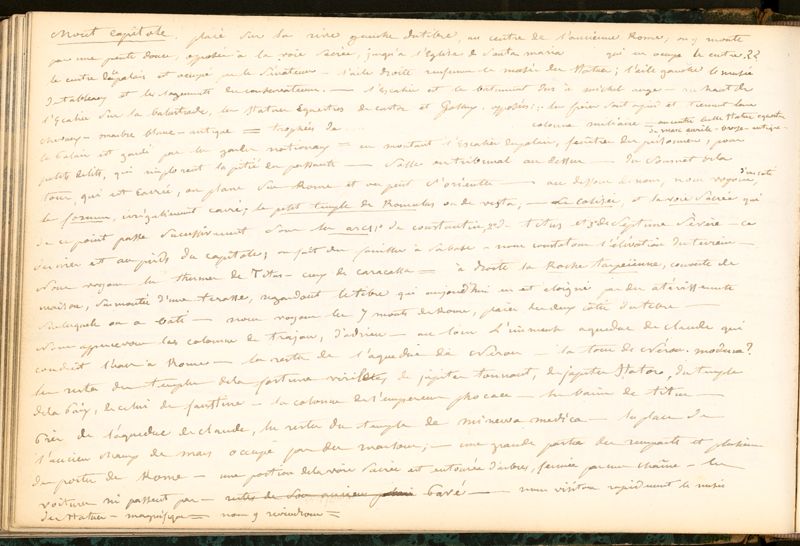 Mont Capitole. placé sur la rive gauche du tibre, au centre de l'ancienne Rome, on y monte
par une pente douce, opposée à la voie Sacrée, jusqu'à l'Eglise de Santa maria qui en occupe le centre
le centre du palais est occupé par le Sénateur - l'aile droite renferme le musée des Statues; l'aile gauche le musée
de tableaux et les logements des conservateurs. - l'Escalier et le bâtiment dus à michel ange - au haut de
l'Escalier sur la balustrade, les Statues Equestres de castor et Pollux, opposés; les tiennent leurs
chevaux - marbre blanc - antique = trophées de .... colonne milliaire = au centre belle Statue equestre
de marc aurèle - bronze - antique -
le Palais est gardé par la garde nationale = en montant l'Escalier du palais, fenêtres des prisonniers, pour
petits délits, qui implorent la pitié des passants - Salle du tribunal au dessus - du Sommet de la
tour, qui est carrée, on plane sur Rome et on peut s'orienter - au dessous de nous, nous voyons, d'un coté
le forum, irrégulièrement carré; le petit temple de Romulus ou de vesta, - Le Colisée, et la voie Sacrée qui
de ce point passe successivement sous les arcs 1° de constantin, 2° de titus et 3° de Septime Sévère - ce
dernier est au pied du capitole; on fait des fouilles à sa base
nous voyons les thermes de Titus - ceux de caracalla = à droite la Roche tarpéienne, couverte de
maisons, surmontée d'une terrasse, regardant le tibre qui aujourd'hui en est éloigné par des atérissements
sur lesquels on a bâti - nous voyons les 7 monts de Rome, placés des deux côtés du tibre -
nous appercevons les colonnes de trajan, d'adrien - au loin L'immense aqueduc de claude qui
conduit l'eau à Rome - les restes de l'aqueduc de Néron - la tour de Néron. moderne?
les restes des temples de la fortune virile, de jupiter tonnant, de jupiter Stator, du temple
de la Paix, de celui de faustine - la colonne de l'empereur phocas - les bains de titus -
Près de l'aqueduc de claude, les restes du temple de minerva medica - la place de
l'ancien champ de mars occupé par des maisons; - une grande partie des remparts et plusieurs
des portes de Rome - une portion de la voie Sacrée est entourée d'arbres, fermée par une chaîne - les
voitures ni passent pas - pavés - nous visitons rapidement le musée
des Statues - magnifique = nous y reviendrons =